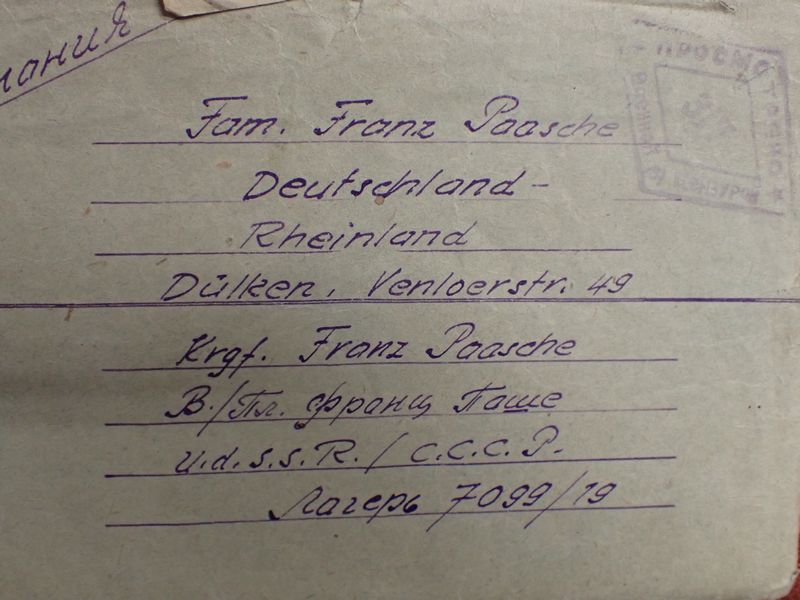 Fam. Franz Paasche
Deutschland-
Rheinland
Dülken, Venloerstr. 49
Krgf. Franz Paasche
В./Пл. франц Паше
U.d.S.S.R. / С.С.С.Р.
Лагерь 7099/19